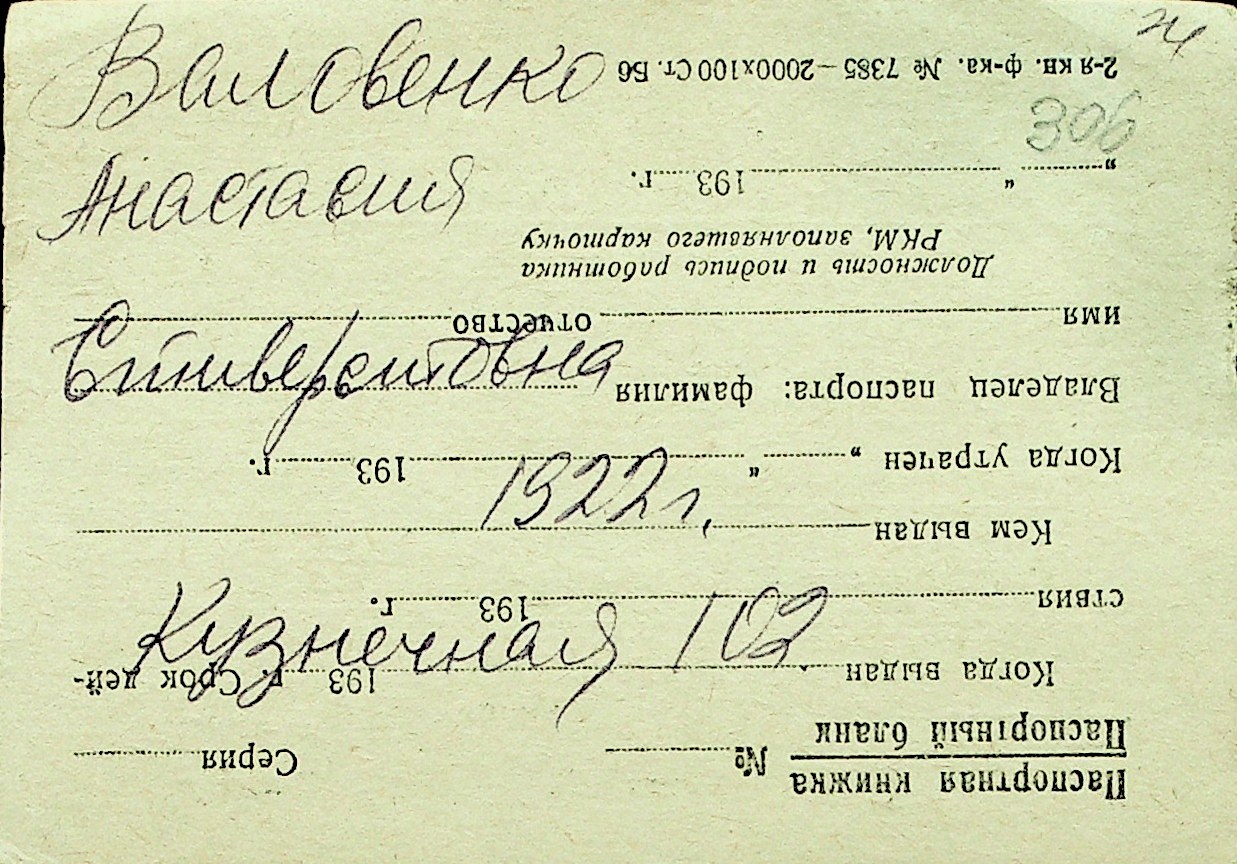 Валовенко
Анастасия
Спиверитовна
1922 г.
Кузнечная 102
306
Паспортная книжка
Паспортный бланк
№ Серия
Когда выдан 193 г. Срок дей-
ствия 193 г.
Кем выдан
Когда утрачен „ “ 193 г.
Владелец паспорта: фамилия
имя отчество
Должность и подпись работника
РКМ, заполнявшего карточку
„ “ 193 г.
2-я кв. ф-ка. № 7385—2000х100 Ст. Б6